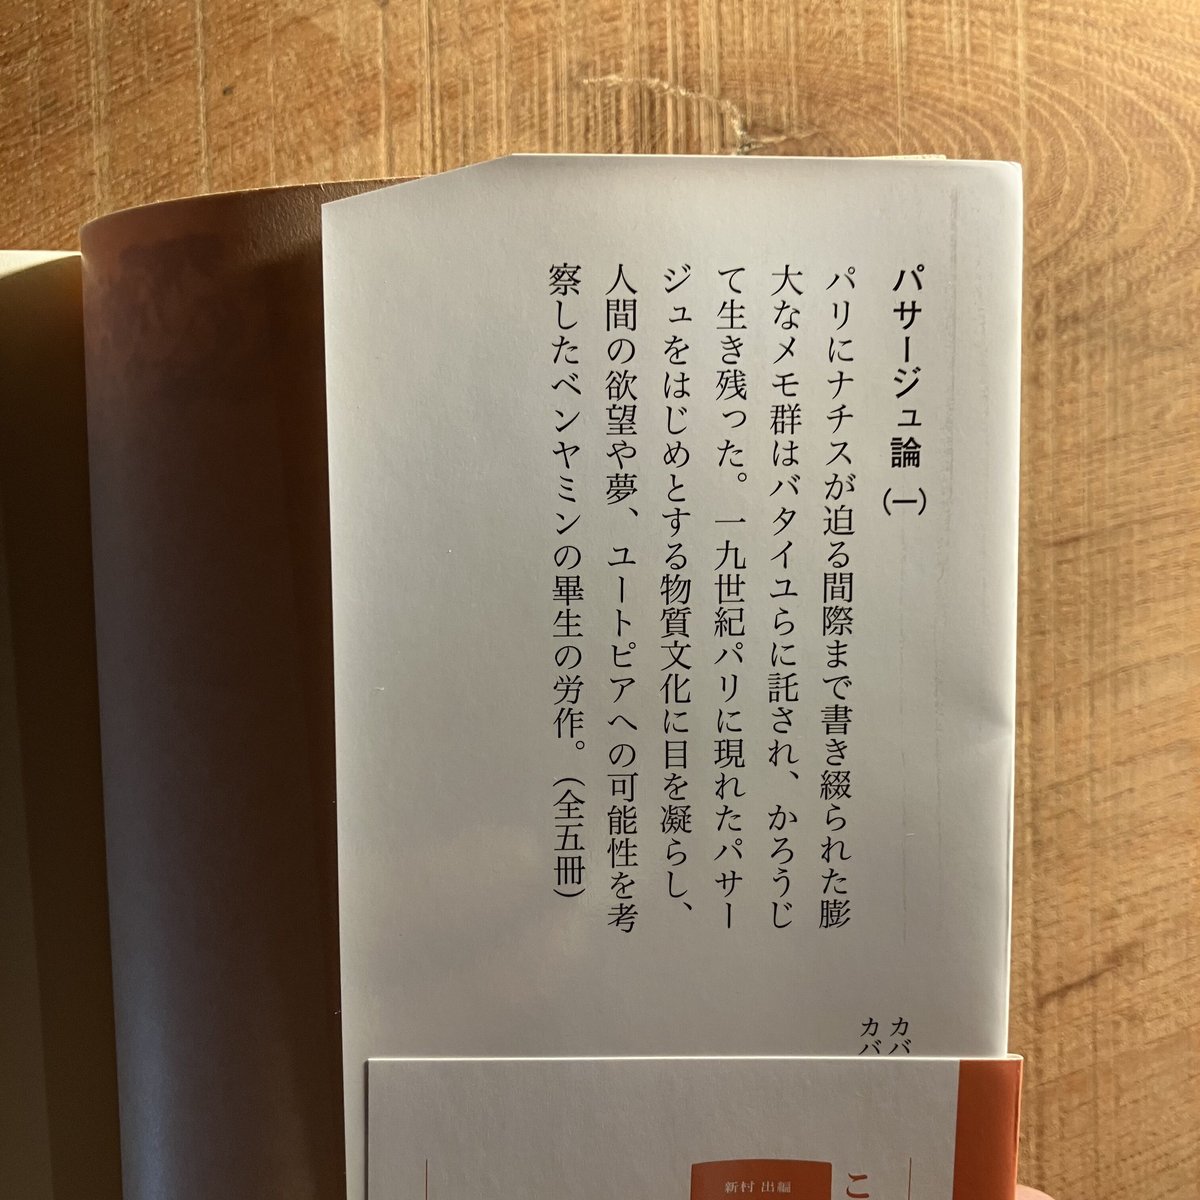 パサージュ論(一)
パリにナチスが迫る間際まで書き綴られた膨
大なメモ群はバタイユらに託され、かろうじ
て生き残った。一九世紀パリに現れたパサー
ジュをはじめとする物質文化に目を凝らし、
人間の欲望や夢、ユートピアへの可能性を考
察したベンヤミンの畢生の労作。(全五冊)
カバ
カバ
こ
新村 出編